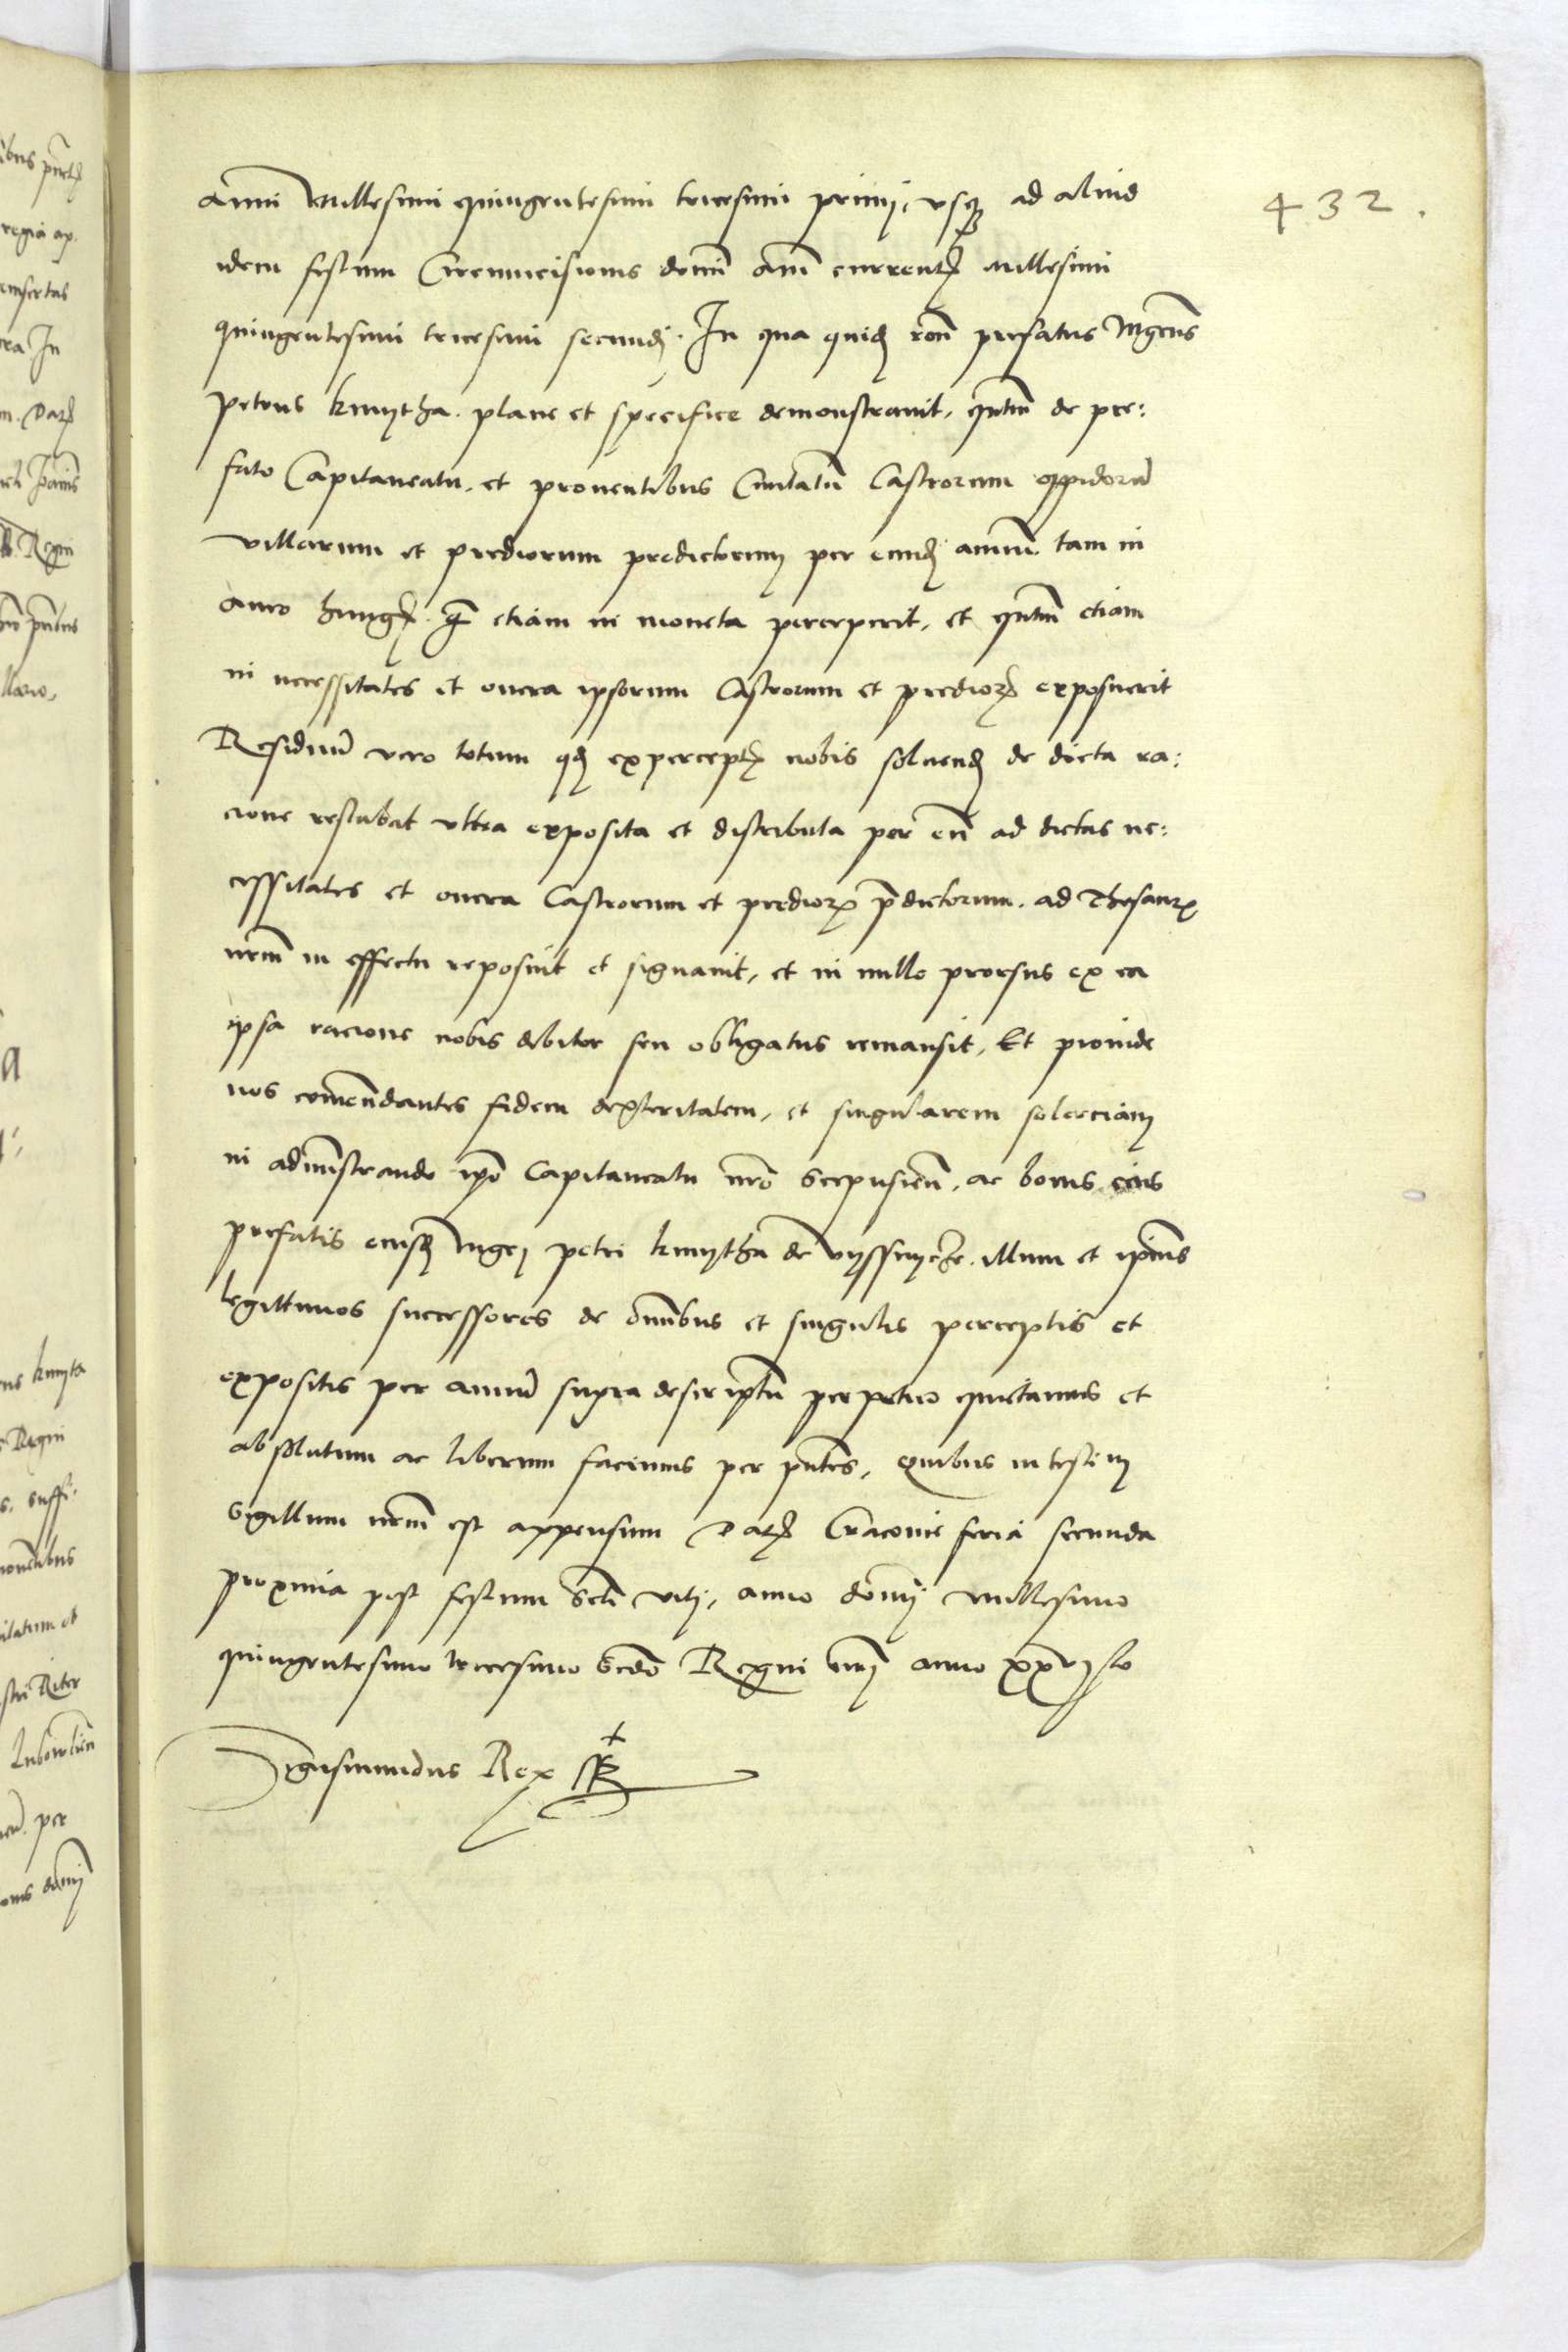 432.
anni Millesimi quingentesimi tricesimi primi, usque ad aliud
idem festum Circumcisionis domĩ anñi currentꝭ Millesimi
quingentesimi tricesimi secundi. In qua quidẽ roñe prefatus Mgcus
petrus kmytha. plane et specifice demonstravit, qñtum de pre:
fato Capitaneatu, et proventibus Civitatũ Castrorum oppidorũ
villarum et prediorum predictorum per eundẽ annum. tam in
auro hungꝭ. qͫ etiam in moneta perceperit, et qñtum etiam
in necessitates et onera ipsorum Castrorum et predioꝝ exposuerit
Residuũ vero totum qd exceptꝭ nobis solvendꝭ de dicta ra:
cione restabat ultra exposita et distributa per eũ ad dictas ne:
cessitates et onera Castrorum et predioꝝ p̃dictorum. ad Thesauꝝ
nrm̃ in effectu reposuit et signavit, et in nullo prorsus ex ea
ipsa racione nobis debitor seu obligatus remansit, Et proinde
nos com̃endantes fidem dexteritatem, et singularem solerciam
in adm̃istrando ipo Capitaneatu nr̃o Scepusieñ. ac bonis eius
prefatis eiusdẽ Mgci petri kmytha de vyssnycze. illum et ipius
legittimos successores de om̃ibus et singulis perceptis et
expositis per annũ supra descriptũ perpetuo quietamus et
absolutum ac liberum facimus per pñtes, Quibus in testim
Sigillum nrm̃ est appensum Datꝭ Cracovie feria secunda
proxima post festum Scti viti, anno domĩ Millesimo
quingentesimo tricesimo Scdo Regni nri anno xxvjto
Sigismundus Rex